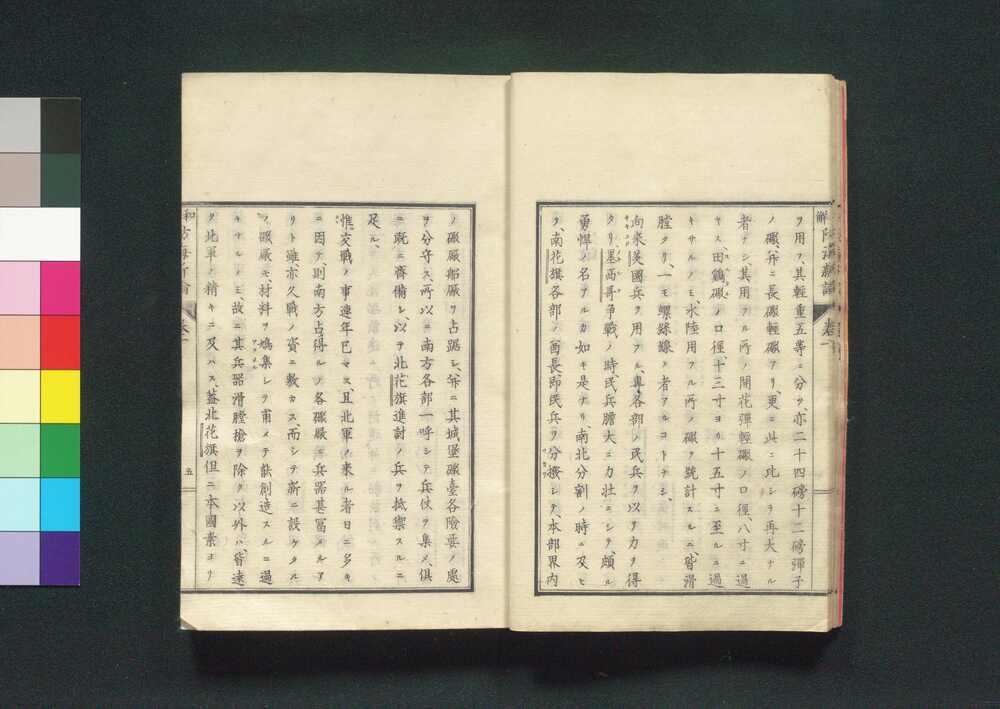 ヲ用フ、其輕重五等ニ分ツ、亦二十四磅十二磅彈子
ノ礮、并ニ長礮輕礮アリ、更ニ此ニ比シヲ再大ナル
者ナシ、其用フル所ノ開花彈輕礮ノ口徑、八寸ニ過
キス、田鷄礮ノ口徑十三寸ヨカ十五寸ニ至ルニ過
キサルノミ、水陸用フル所ノ礮ヲ號計スルニ、皆滑
膛タリ、一モ螺絲線ノ者アルコトナシ、
向來美國兵ヲ用フル、專各部ノ民兵ヲ以テ力ヲ得
タリ、墨西哥爭戰ノ時、民兵膽大ニ力壯ニシテ、頗ル
勇悍ノ名アルカ如キ是ナリ、南北分割ノ時ニ及ヒ
テ、南花旗各部ノ酋長、即民兵ヲ分撥シテ、本部界内
ノ礮厰船厰ヲ占踞シ、并ニ其城堡礮臺各險要ノ處
ヲ分守ス、所以ニ南方各部一呼シテ兵仗ヲ集メ、俱
ニ既ニ齊備シ、以テ北花旗進討ノ兵ヲ抵禦スルニ
足ル、
惟交戰ノ事連年已マス、且北軍ノ來ル者日ニ多キ
ニ因テ、則南方占得ルノ各礮厰ニ兵器甚冨メルア
リト雖、亦久戰ノ資ニ敷カス、而シテ新ニ設ケタル
ノ礮厰モ、材料ヲ鳩集シテヲ甫メテ試創造スルニ過
キサルノミ、故ニ其兵器滑膛槍ヲ除ク以外ハ、皆遠
ク北軍ノ精キニ及ハス、蓋北花旗但ニ本國素ヨリ
五